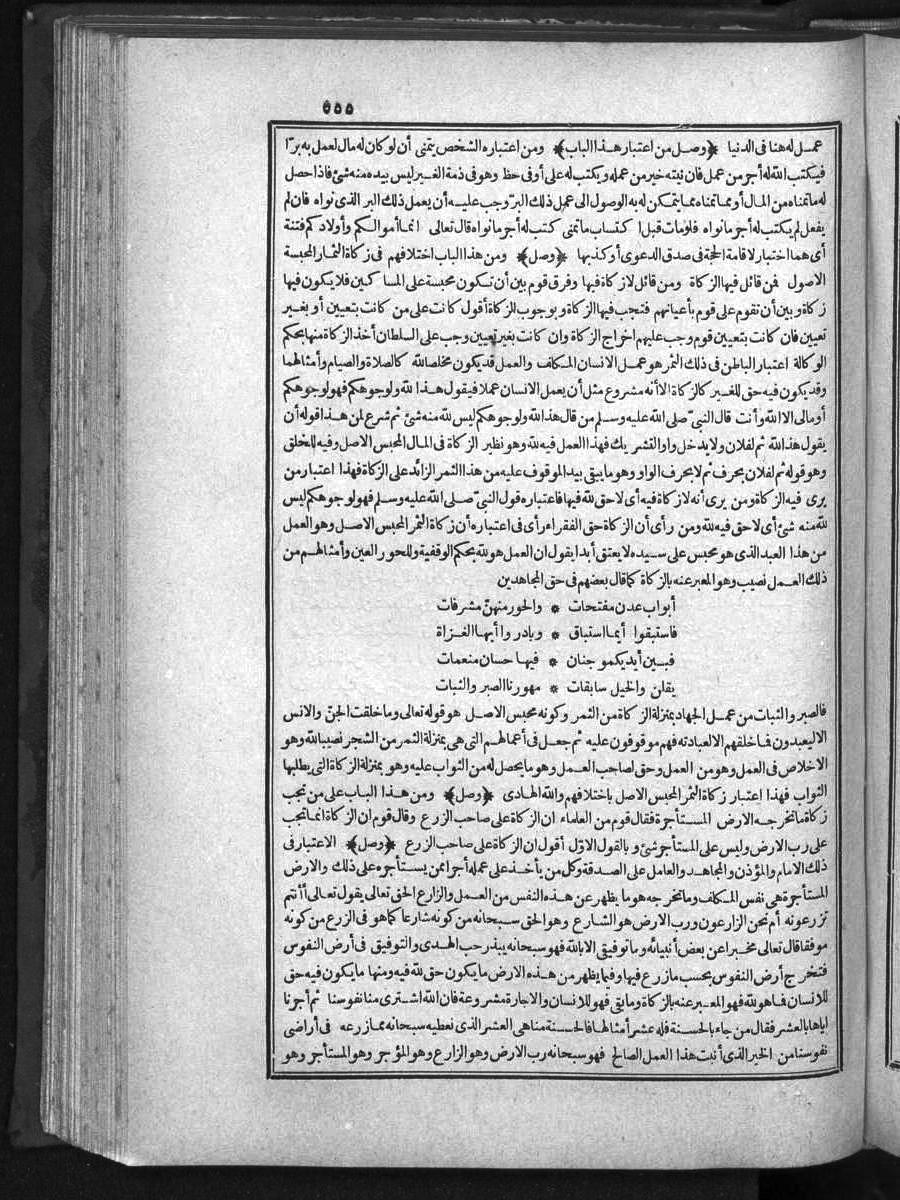 ٥٥٥
عمل له هنا فى الدنيا ﴿وصل من اعتبار هذا الباب﴾ ومن اعتباره الشخص يتمنى أن لو كان له مال لعمل به برّا
فيكتب الله له أجر من عمل فان نيته خير من عمله ويكتب له على أوفى حظ وهو فى ذمة الغير ليس بيده منه شئ فاذا حصل
له ما تمناه من المال أو مما تمناه مما يتمكن له به الوصول الى عمل ذلك البرّ وجب عليه أن يعمل ذلك البر الذى نواه فان لم
يفعل لم يكتب له أجر ما نواه فلو مات قبل اكتساب ما تمنى كتب له أجر ما نواه قال تعالى انما أموالكم وأولادكم فتنة
أى هما اختبار لاقامة الحجة فى صدق الدعوى أو كذبها ﴿وصل﴾ ومن هذا الباب اختلافهم فى زكاة الثمار المحبسة
الاصول فمن قائل فيها الزكاة ومن قائل لا زكاة فيها وفرق قوم بين أن تكون محبسة على المساكين فلا يكون فيها
زكاة وبين أن تقوم على قوم بأعيانهم فتجب فيها الزكاة وبوجوب الزكاة أقول كانت على من كانت بتعيين أو بغير
تعيين فان كانت بتعيين قوم وجب عليهم اخراج الزكاة وان كانت بغير تعيين وجب على السلطان أخذ الزكاة منها بحكم
الوكالة اعتبار الباطن فى ذلك الثمر هو عمل الانسان المكلف والعمل قد يكون مخلصا لله كالصلاة والصيام وأمثالهما
وقد يكون فيه حق للغير كالزكاة الا أنه مشروع مثل أن يعمل الانسان عملا فيقول هذا لله ولوجوهكم فهو لوجوهكم
أو مالى الا الله وأنت قال النبىّ صلى الله عليه وسلم من قال هذا لله ولوجوهكم ليس لله منه شئ ثم شرع لمن هذا قوله أن
يقول هذا لله ثم لفلان ولا يدخل واو التشريك فهذا العمل فيه لله وهو نظير الزكاة فى المال المحبس الاصل وفيه للخلق
وهو قوله ثم لفلان بحرف ثم لا بحرف الواو وهو ما يبقى بيد الموقوف عليه من هذا الثمر الزائد على الزكاة فهذا اعتبار من
يرى فيه الزكاة ومن يرى أنه لا زكاة فيه أى لا حق لله فيها فاعتباره قول النبىّ صلى الله عليه وسلم فهو لوجوهكم ليس
لله منه شئ أى لا حق فيه لله ومن رأى أن الزكاة حق الفقراء رأى فى اعتباره أن زكاة الثمر المحبس الاصل وهو العمل
من هذا العبد الذى هو محبس على سيده لا يعتق أبدا يقول ان العمل هو لله بحكم الوقفية وللحور العين وأمثالهم من
ذلك العمل نصيب وهو المعبر عنه بالزكاة كما قال بعضهم فى حق المجاهدين
أبواب عدن مفتحات * والحور منهنّ مشرفات
فاستبقوا أيما استباق * وبادروا أيها الغزاة
فبين أيديكمو جنان * فيها حسان منعمات
يقلن والخيل سابقات * مهورنا الصبر والثبات
فالصبر والثبات من عمل الجهاد بمنزلة الزكاة من الثمر وكونه محبس الاصل هو قوله تعالى وما خلقت الجنّ والانس
الا ليعبدون فما خلقهم الا لعبادته فهم موقوفون عليه ثم جعل فى أعمالهم التى هى بمنزلة الثمر من الشجر نصيبا لله وهو
الاخلاص فى العمل وهو من العمل وحق لصاحب العمل وهو ما يحصل له من الثواب عليه وهو بمنزلة الزكاة التى يطلبها
الثواب فهذا اعتبار زكاة الثمر المحبس الاصل باختلافهم والله الهادى ﴿وصل﴾ ومن هذا الباب على من تجب
زكاة ما تخرجه الارض المستأجرة فقال قوم من العلماء ان الزكاة على صاحب الزرع وقال قوم ان الزكاة انما تجب
على رب الارض وليس على المستأجر شئ وبالقول الاوّل أقول ان الزكاة على صاحب الزرع ﴿وصل﴾ الاعتبار فى
ذلك الامام والمؤذن والمجاهد والعامل على الصدقة وكل من يأخذ على عمله أجرا ممن يستأجره على ذلك والارض
المستأجرة هى نفس المكلف وما تخرجه هو ما يظهر عن هذه النفس من العمل والزارع الحق تعالى يقول تعالى أأنتم
تزرعونه أم نحن الزارعون ورب الارض هو الشارع وهو الحق سبحانه من كونه شارعا كما هو فى الزرع من كونه
موفقا قال تعالى مخبرا عن بعض أنبيائه وما توفيقى الا بالله فهو سبحانه يبذر حب الهدى والتوفيق فى أرض النفوس
فتخرج أرض النفوس بحسب ما زرع فيها وفيما يظهر من هذه الارض ما يكون حق لله فيه ومنها ما يكون فيه حق
للانسان فما هو لله فهو المعبر عنه بالزكاة وما بقى فهو للانسان والاجارة مشروعة فان الله اشترى منا نفوسنا ثم أجرنا
اياها بالعشر فقال من جاء بالحسنة فله عشر أمثالها فالحسنة منا هى العشر الذى نعطيه سبحانه مما زرعه فى أراضى
نفوسنا من الخير الذى أنبت هذا العمل الصالح فهو سبحانه رب الارض وهو الزارع وهو المؤجر وهو المستأجر وهو